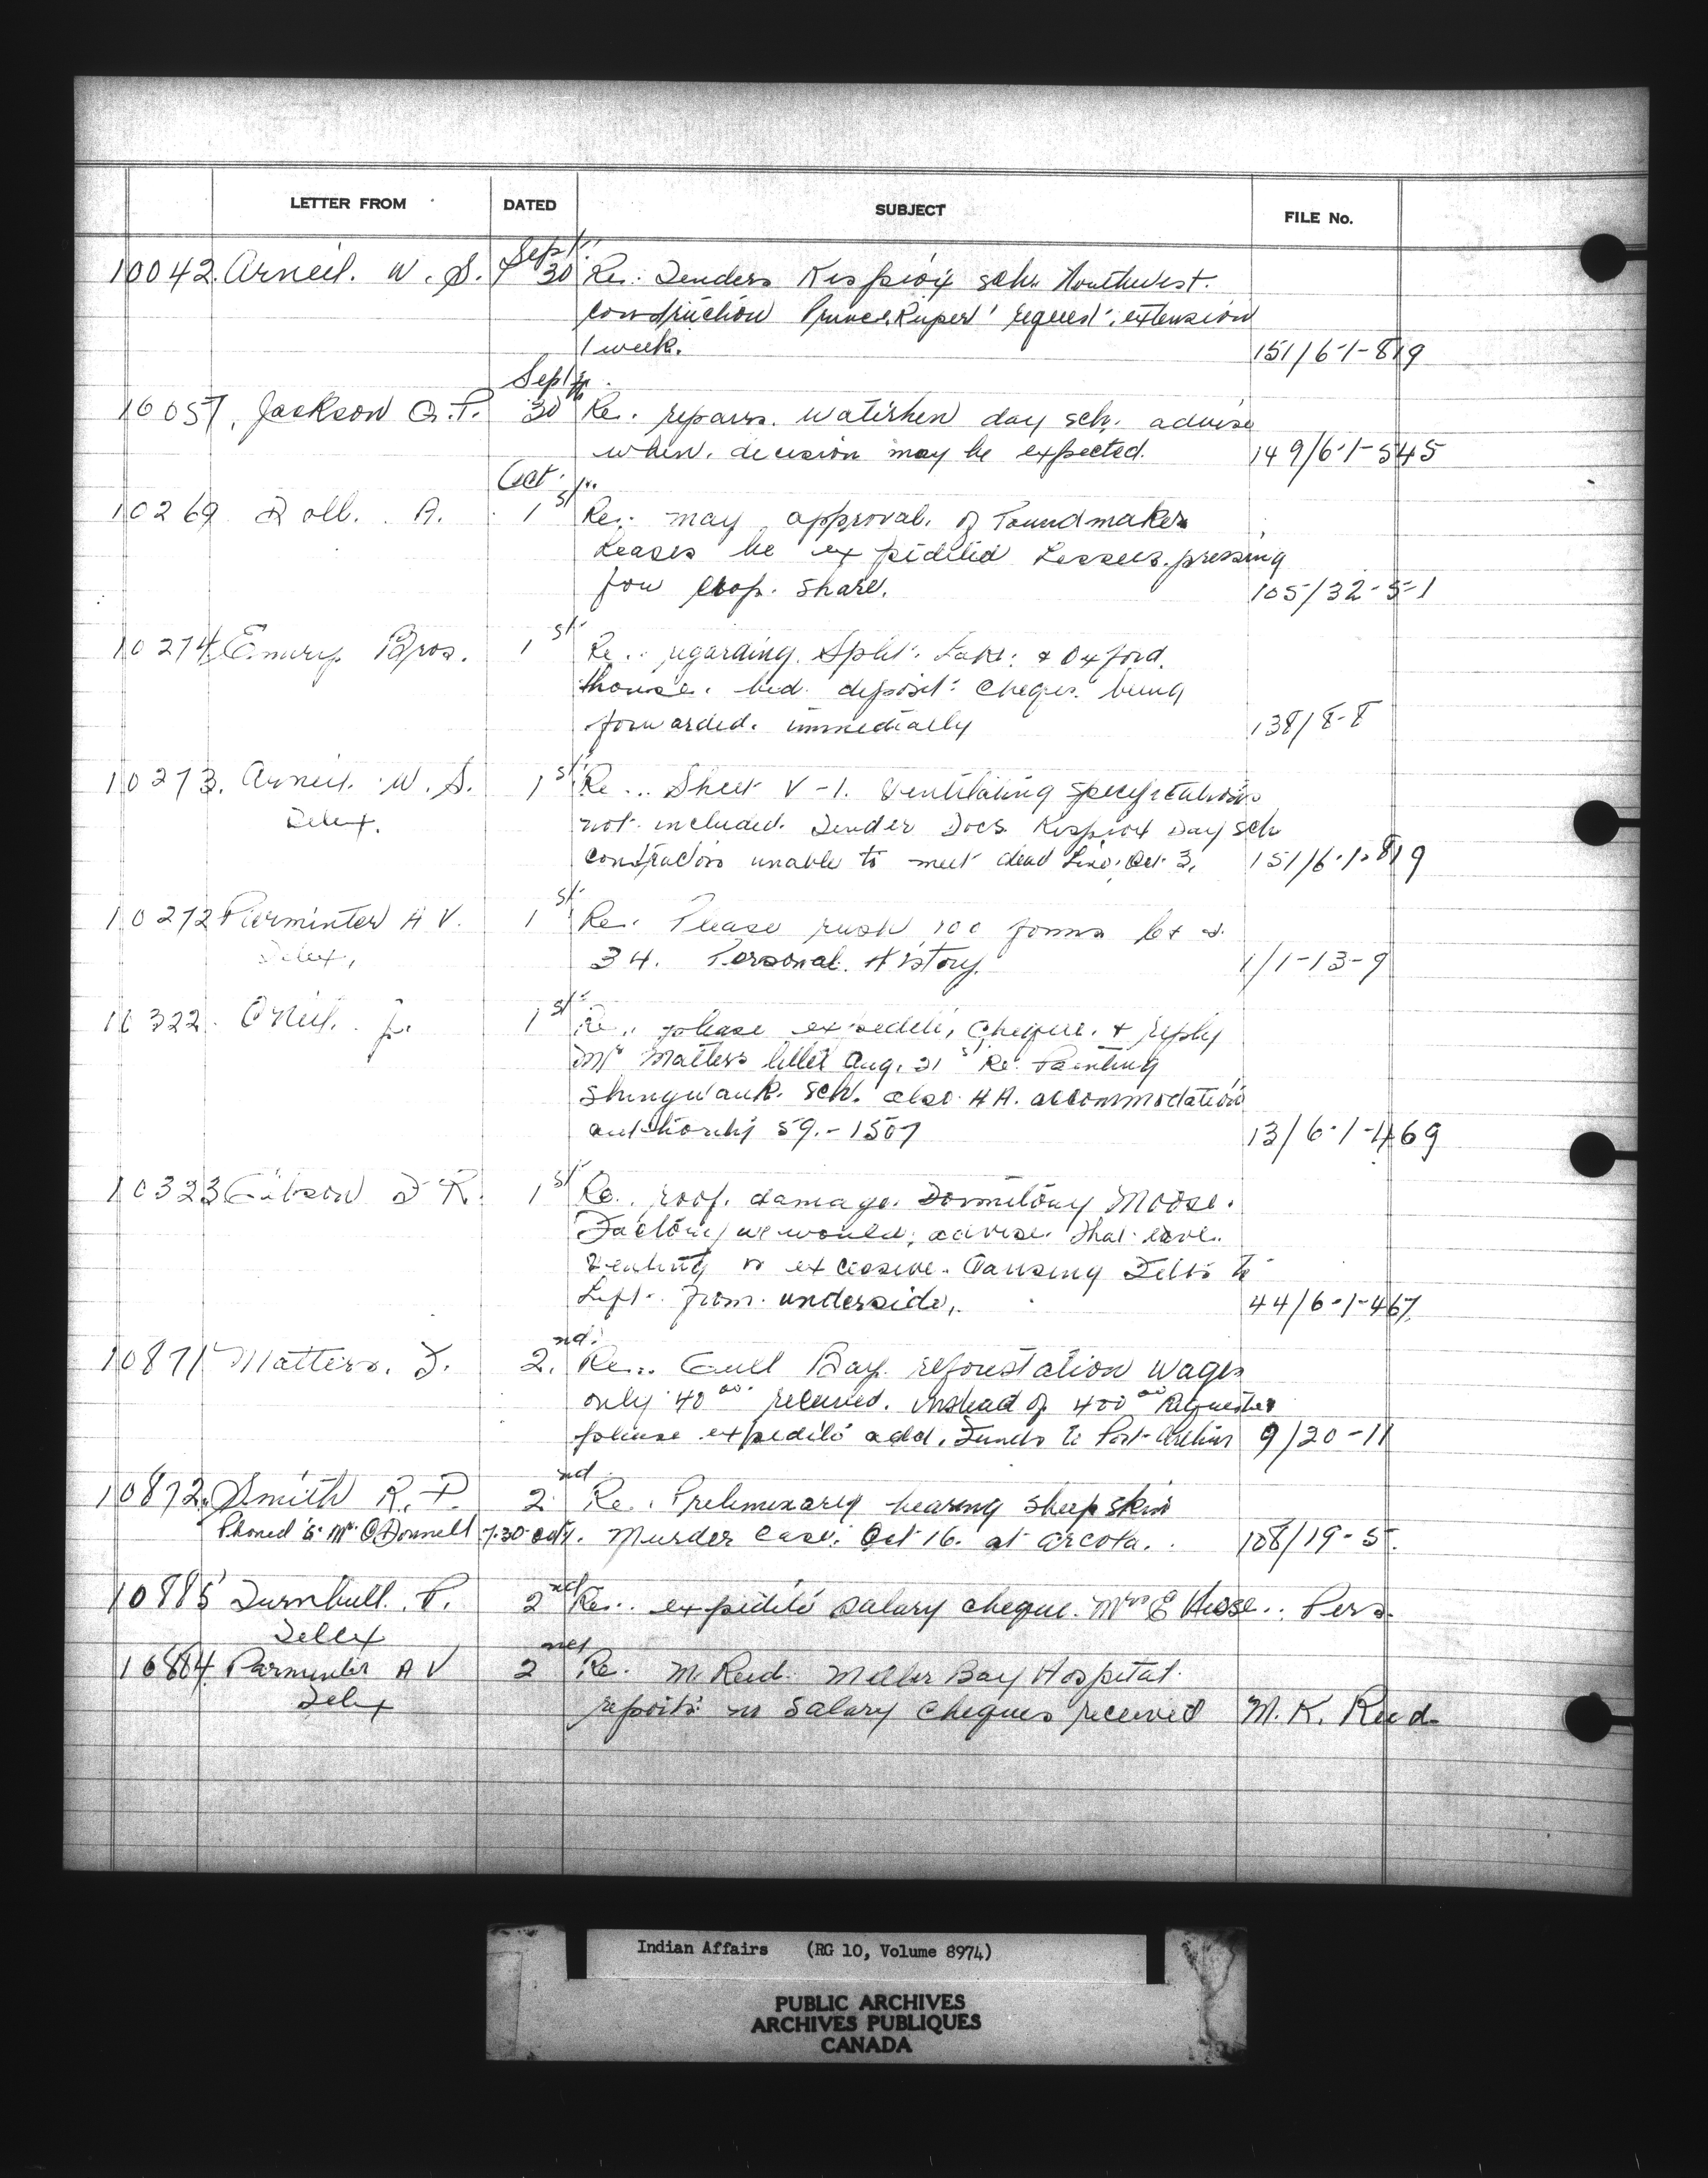 LETTER FROM DATED SUBJECT FILE No.
Sept.
10042. Arneil. W. S. 30 Re: Tenders Kispiox sch. Northwest.
construction Prince Rupert request. extension
1 week. 151/6-1-819
Sept.
10057. Jackson 30 Re. repairs. Waterhen day sch. advise
when. decision may be expected. 149/6-1-545
Oct.
10269 A. 1st Re: may approval. of Poundmaker
Leases be expedited Lessees. pressing
for crop. share. 105/32-5-1
10274 Emery Bros. 1st Re.. regarding. Split. Lake. & Oxford.
House. bid. deposit. cheques. being
forwarded. immediately 138/8-8
10273. Arneil. W. S. 1st Re... Sheet V-1. Ventilating specifications
Telex. not included. Tender Docs Kispiox Day Sch
contractors unable to meet dead line. Oct 3. 151/6-1-819
10272 Parminter A V. 1st Re. Please rush 100 forms
Telex, 34. Personal. History. 1/1-13-9
10322. O'Neil. J. 1st Re.. please expedite, cheque. & reply
Mr Matters letter Aug. 21st Re. Painting
Shingwauk. Sch. also. accommodation
authority 59.-1507 13/6-1-469
10323 Gibson D R. 1st Re. roof. damage. Dormitory Moose.
Factory we would. advise. that eave.
venting is excessive. causing to
Lift. from. underside,. 44/6-1-467.
nd.
10871 Matters. F. 2. Re... Gull Bay. reforestation wages
only 40.00 received. instead of 400.00 Requested
please expedite add. Funds to Port-Arthur 9/20-11
nd
10872. Smith R. P. 2 Re. Preliminary hearing sheepskin
Phoned to Mr O'Donnell 7.30 Murder Case. Oct 16. at Arcola. . 108/19-5.
10885 Turnbull. P. 2nd Re.. expedite salary cheque. Mrs E . Pers.
Telex
10884. Parminter A V 2nd Re. M. Reid. Miller Bay Hospital.
Telex reports no salary cheques received M. K. Reid.
Indian Affairs (RG 10, Volume 8974)
PUBLIC ARCHIVES
ARCHIVES PUBLIQUES
CANADA